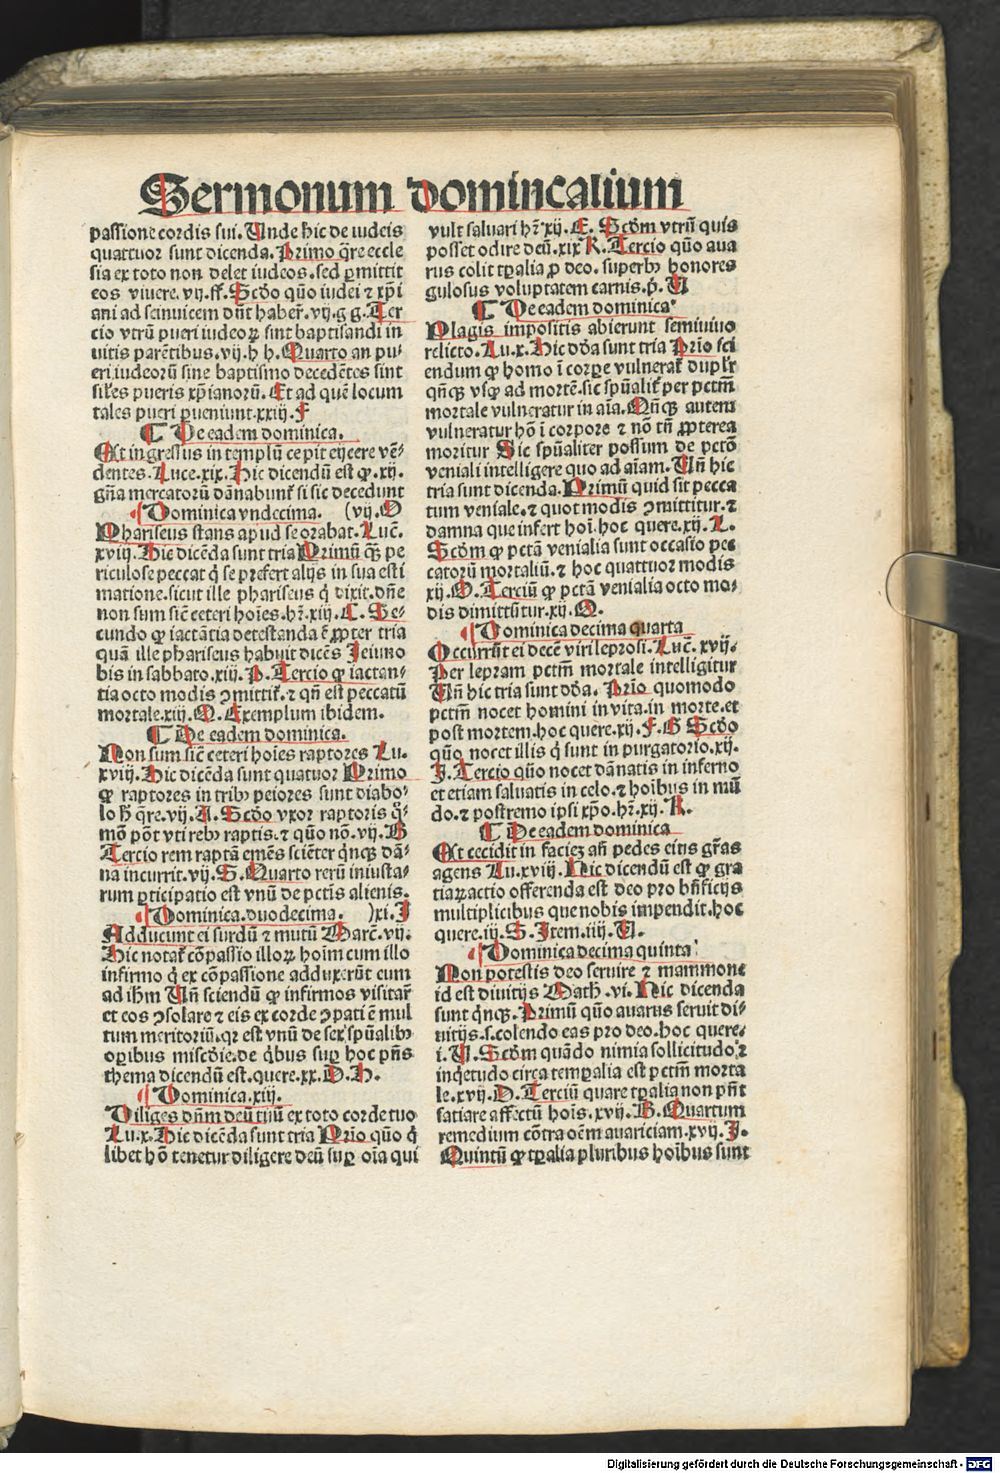 Sermonum domincalium
passione cordis sui. Unde hic de iudeis
quattuor sunt dicenda. Primo q̄re eccle
sia ex toto non delet iudeos. sed ꝑmittit
eos viuere. vij. ff. Scd̄o quō iudei ⁊ xp̄i
ani ad seinuicem dn̄t haber̄. vij. g g. Ter
cio vtrū pueri iudeoꝝ sint baptisandi in
uitis parētibus. vij. h h. Quarto an pu-
eri iudeorū sine baptismo decedētes sint
sil̄es pueris xp̄ianorū. Et ad quē locum
tales pueri ꝑueniunt. xxij. F
De eadem dominica.
Est ingressus in templū cepit eijcere vē-
dentes. Luce. xix. Hic dicendū est ꝙ. xij.
gn̄a mercatorū dānabunt̄ si sic decedunt
Dominica vndecima. (vij. O
Phariseus stans apud se orabat. Luc̄.
xviij. Hic dicēda sunt tria Primū ꝙ̄ pe
riculose peccat q̇ se prefert alijs in sua esti
matione. sicut ille phariseus q̇ dixit. dn̄e
non sum sic̄ ceteri hoīes. hr̄. xiij. C. Se-
cundo ꝙ iactātia detestanda ē ꝓpter tria
quā ille phariseus habuit dicēs Ieiuno
bis in sabbato. xiij. P. Tercio ꝙ iactan-
tia octo modis ꝯmittit̄. ⁊ qn̄ est peccatū
mortale. xiij. Q. Exemplum ibidem.
De eadem dominica.
Non sum sic̄ ceteri hoīes raptores Lu.
xviij. Hic dicēda sunt quatuor Primo
ꝙ raptores in tribꝰ peiores sunt diabo-
lo h̄ q̄re. vij. A. Scd̄o vxor raptoris q̄-
mō pōt vti rebꝰ raptis. ⁊ quō nō. vij. B
Tercio rem raptā emēs sciēter q̇nꝙ dā-
na incurrit. vij. S. Quarto rerū iniusta-
rum ꝑticipatio est vnū de pctīs alienis.
Dominica. duodecima. )xi. I
Adducunt ei surdū ⁊ mutū Marc̄. vij.
Hic notat̄ cōpassio illoꝝ hoīm cum illo
infirmo q̇ ex cōpassione adduxerūt eum
ad ih̄m Un̄ sciendū ꝙ infirmos visitar̄
et eos ꝯsolare ⁊ eis ex corde ꝯpati ē mul
tum meritoriū. qꝛ est vnū de sex sp̄ualibꝰ
oꝑibus misc̄die. de q̇bus suꝑ hoc pn̄s
thema dicendū est. quere. xx. D. H.
Dominica. xiij.
Diliges dn̄m deū tuū ex toto corde tuo
Lu. x. Hic dicēda sunt tria Prīo quō q̇
libet hō tenetur diligere deū suꝑ oīa qui
vult saluari hr̄ xij. E. Scd̄m vtrū quis
posset odire deū. xix K. Tercio quō aua
rus colit tꝑalia ꝓ deo. superbꝰ honores
gulosus voluptatem carnis. p̄. U
De eadem dominica
Plagis impositis abierunt semiuiuo
relicto. Lu. x. Hic dd̄a sunt tria Prīo sci
endum ꝙ homo ī corꝑe vulnerat̄ dupl̄r
qn̄ꝙ vsꝙ ad mortē. sic sp̄ualit̄ per pctm̄
mortale vulneratur in aīa. Qn̄ꝙ autem
vulneratur hō ī corpore ⁊ nō tn̄ ꝓpterea
moritur Sic sp̄ualiter possum de pctō
veniali intelligere quo ad aīam. Un̄ hic
tria sunt dicenda. Primū quid sit pecca
tum veniale. ⁊ quot modis ꝯmittitur. ⁊
damna que infert hoī. hoc quere. xij. L.
Scd̄m ꝙ pctā venialia sunt occasio pec
catorū mortaliū. ⁊ hoc quattuor modis
xij. O. Terciū ꝙ pctā venialia octo mo-
dis dimittūtur. xij. Q.
Dominica decima quarta
Occurrūt ei decē viri leprosi. Luc̄. xvij.
Per lepram pctm̄ mortale intelligitur
Un̄ hic tria sunt dd̄a. Prīo quomodo
pctm̄ nocet homini in vita. in morte. et
post mortem. hoc quere. xij. F. G Scd̄o
quō nocet illis q̇ sunt in purgatorio. xij.
I. Tercio quō nocet dānatis in inferno
et etiam saluatis in celo. ⁊ hoībus in mū
do. ⁊ postremo ipsi xp̄o. hr̄. xij. K.
De eadem dominica
Est cecidit in faciez an̄ pedes eius gr̄as
agens Lu. xviij. Hic dicendū est ꝙ gra
tiaꝝ actio offerenda est deo pro bn̄ficijs
multiplicibus que nobis impendit. hoc
quere. iij. S. Item. iiij. U.
Dominica decima quinta
Non potestis deo seruire ⁊ mammone
id est diuitijs Math̄. vi. Hic dicenda
sunt q̇nꝙ. Primū quō auarus seruit di-
uitijs. s. colendo eas pro deo. hoc quere.
i. U. Scd̄m quādo nimia sollicitudo ⁊
inq̇etudo circa temꝑalia est pctm̄ morta
le. xvij. D. Terciū quare tꝑalia non pn̄t
satiare affectū hoīs. xvij. B. Quartum
remedium cōtra oēm auariciam. xvij. I.
Quintū ꝙ tꝑalia pluribus hoībus sunt
Digitalisierung gefördert durch die Deutsche Forschungsgemeinschaft - DFG